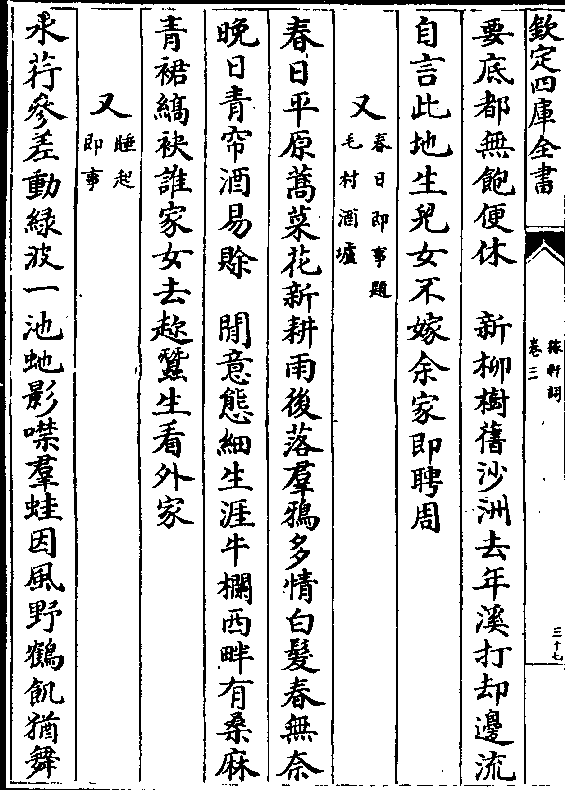 欽定四庫全書
稼軒詞
卷三
三十七
要底都無飽便休　新柳樹舊沙洲去年溪打却邊流
自言此地生兒女不嫁余家即聘周
又春日即事題
毛村酒壚
春日平原薺菜花新耕雨後落羣鴉多情白髮春無奈
晚日青帘酒易賖　閒意態細生涯牛欄西畔有桑麻
青裙縞袂誰家女去趂蠶生看外家
又睡起
即事
水荇參差動緑波一池虵影噤羣蛙因風野鶴飢猶舞